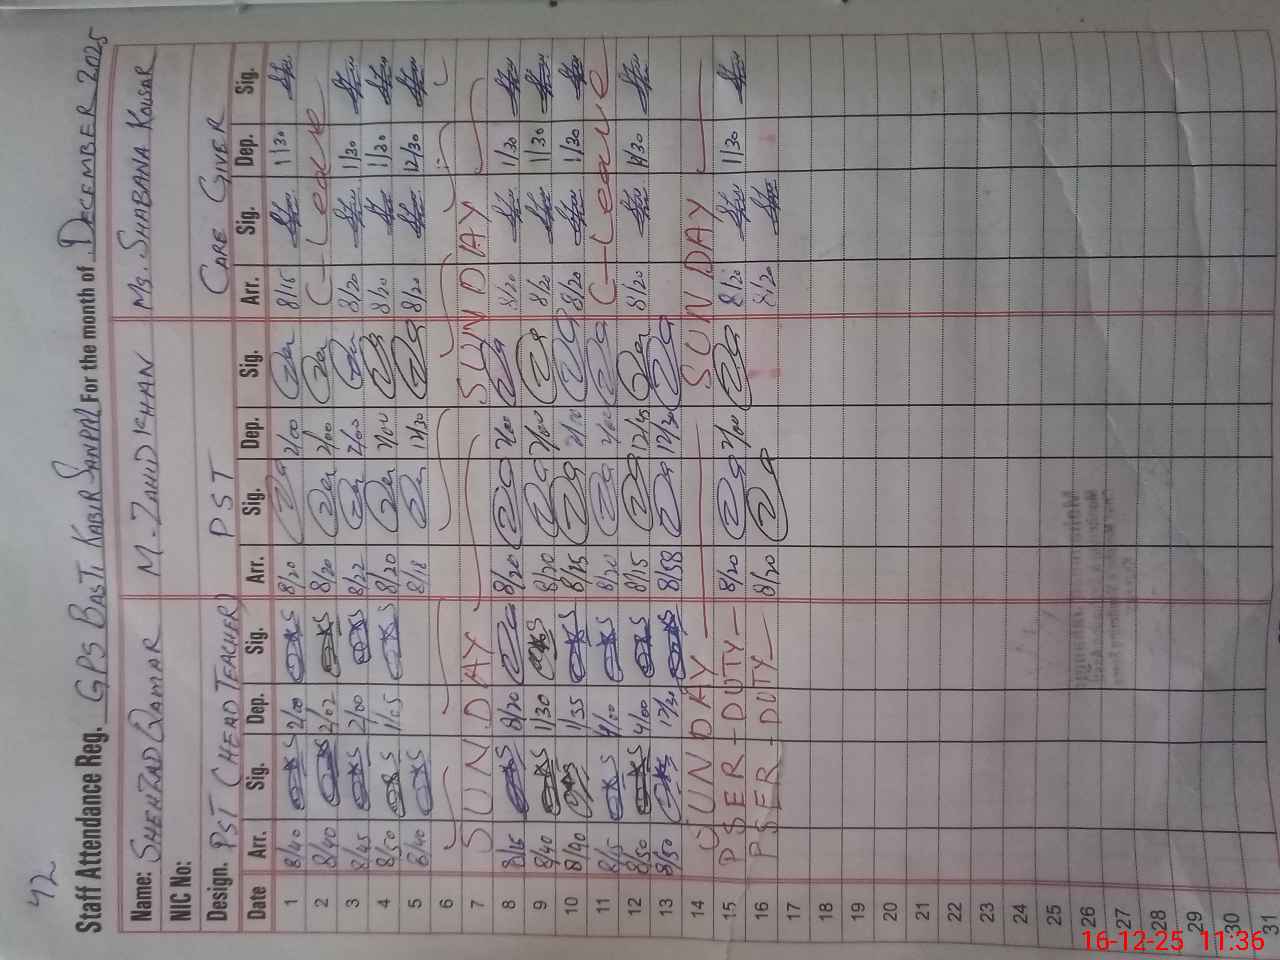 42
Staff Attendance Reg. GPS BASTI KABIR SANPAL For the month of DECEMBER 2025
Name: SHEHZAD QAMAR M. ZAHID KHAN Ms. SHABANA KOUSAR
NIC No:
Design. PST (HEAD TEACHER) PST CARE GIVER
Date Arr. Sig. Dep. Sig. Arr. Sig. Dep. Sig. Arr. Sig. Dep. Sig.
1 8/40 2/00 8/20 2/00 8/15 1/30
2 8/40 2/02 8/20 2/00 C-Leave
3 8/45 2/00 8/22 2/00 8/20 1/30
4 8/50 1/05 8/20 2/00 8/20 1/30
5 8/40 8/18 12/30 8/20 12/30
6
7 SUNDAY SUNDAY
8 8/15 8/20 8/20 2/00 8/20 1/30
9 8/40 1/30 8/20 2/00 8/20 1/30
10 8/40 1/35 8/15 2/00 8/20 1/30
11 8/15 4/00 8/20 2/00 C-Leave
12 8/50 4/00 8/15 12/45 8/20
13 8/50 12/30 8/58 12/30
14 SUNDAY SUNDAY
15 PSER-DUTY 8/20 2/00 8/20 1/30
16 PSER-DUTY 8/20 8/20
17
18
19
20
21
22
23
24
25
26
27
28
29
30
31
16-12-25 11:36